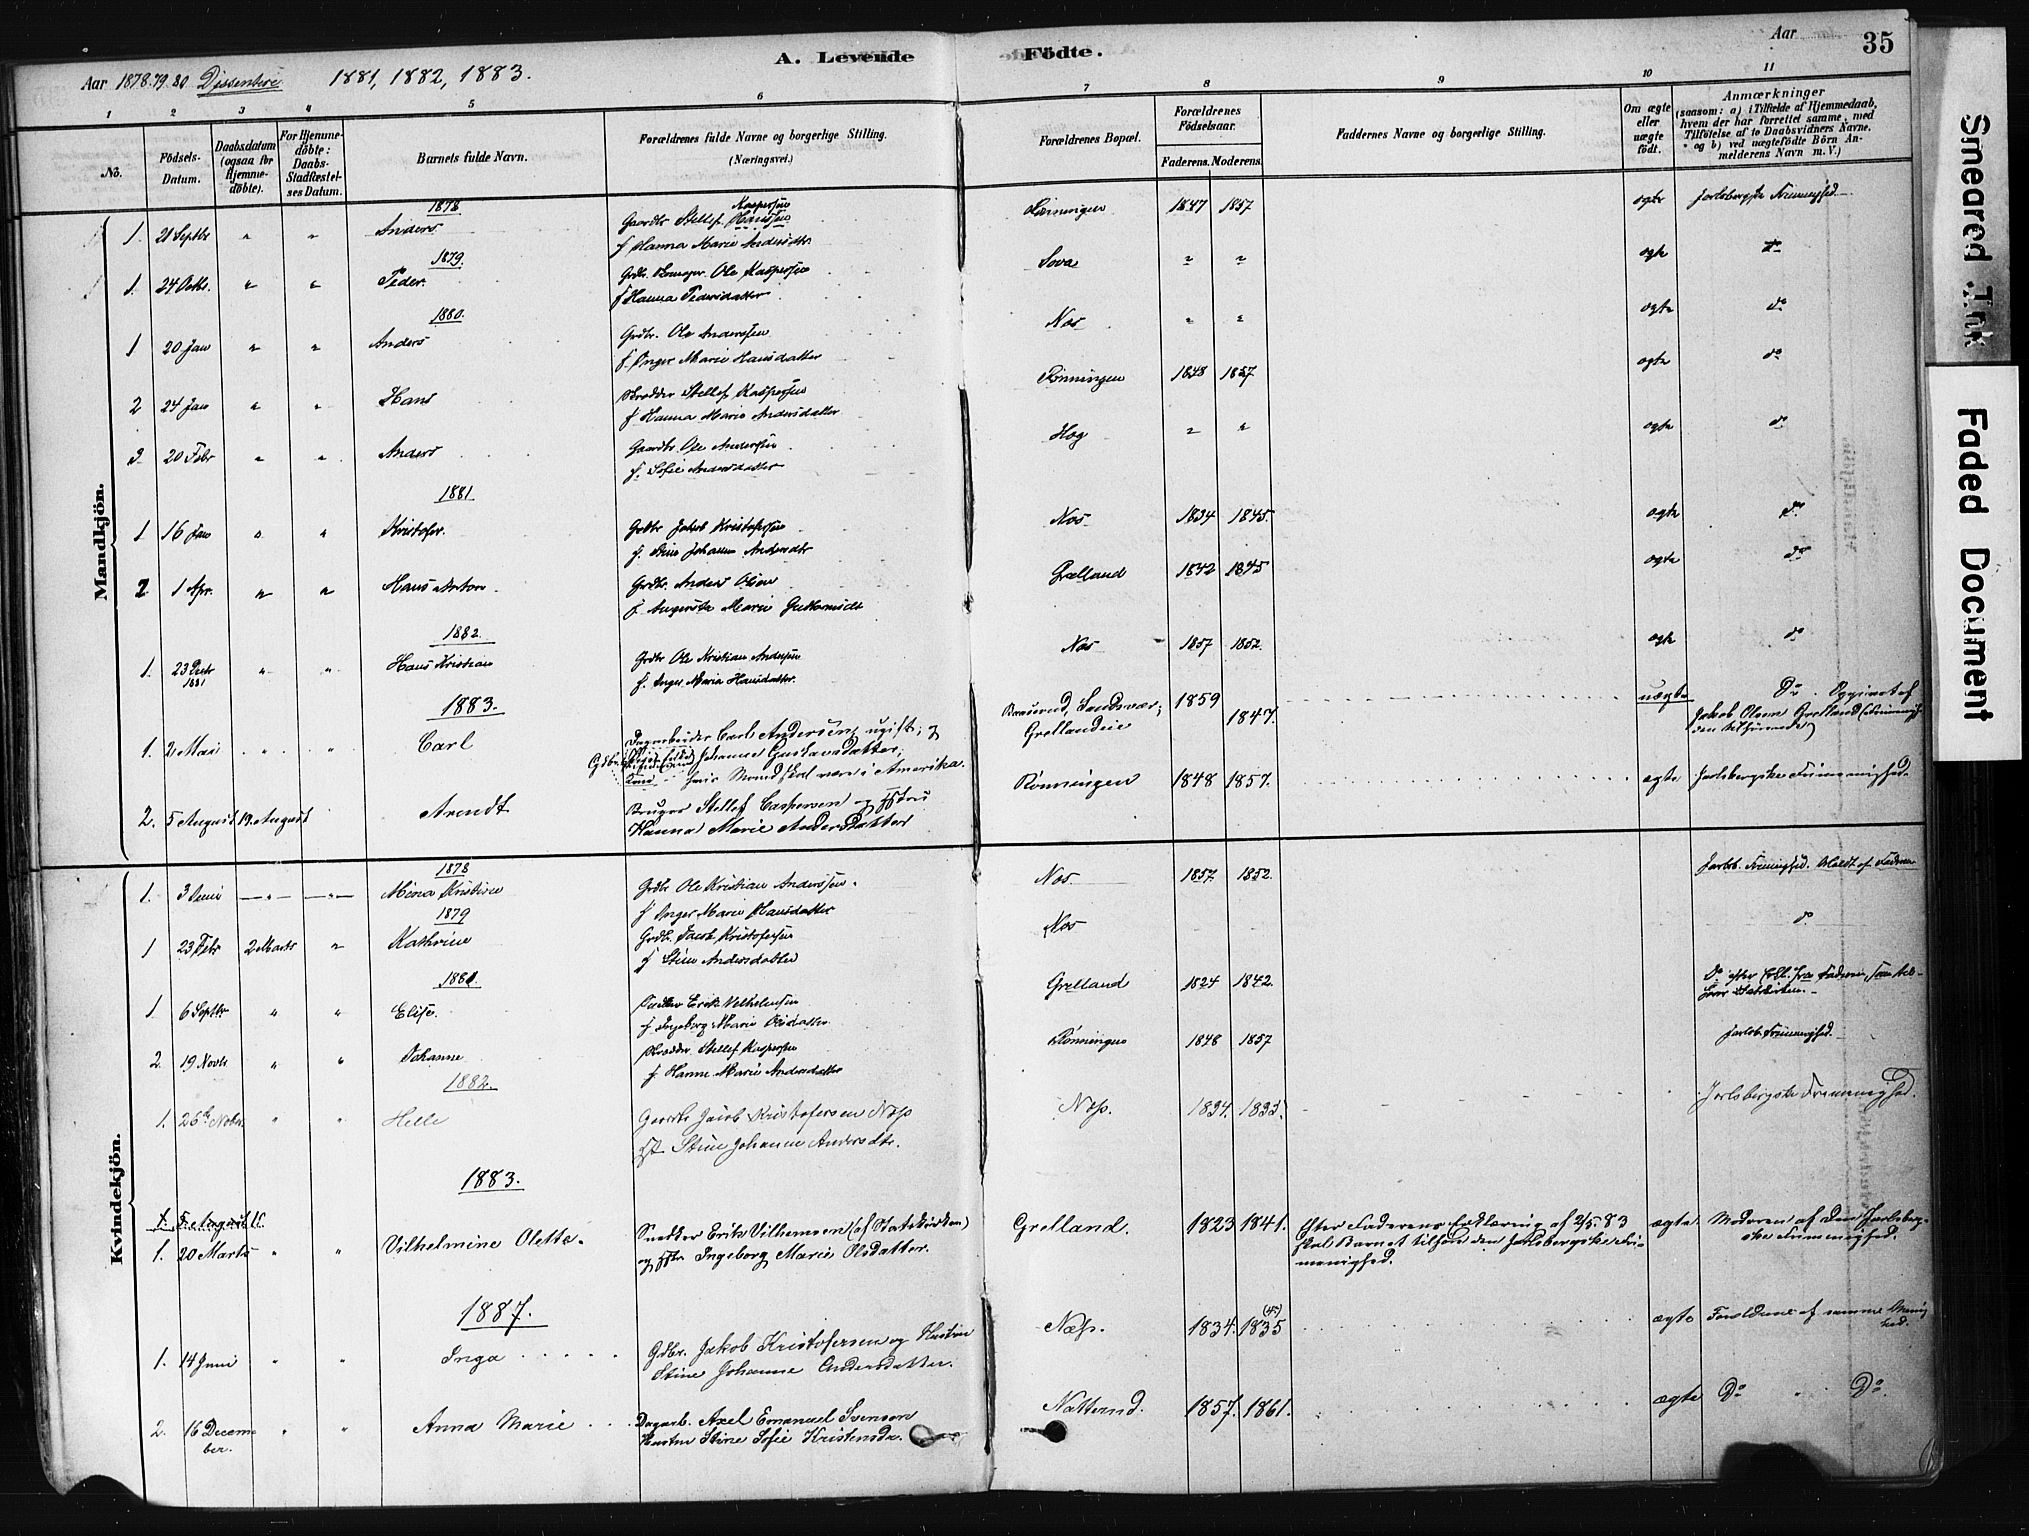 Aar 1878.79.80 Dissentere. 1881, 1882, 1883.
A. Levende Födte.
Aar 35
1 2 3 4 5 6 7 8 9 10 11
No.
Födsels-Datum.
Daabsdatum (ogsaa for Hjemme-döbte).
For Hjemme-döbte: Daabs-Stadfæstel-ses Datum.
Barnets fulde Navn.
Forældrenes fulde Navne og borgerlige Stilling. (Næringsvei.)
Forældrenes Bopæl.
Forældrenes Födselsaar.
Faderens. Moderens.
Faddernes Navne og borgerlige Stilling.
Om ægte eller uægte födt.
Anmærkninger (saasom: a) i Tilfælde af Hjemmedaab, hvem der har forrettet samme, med Tilföielse af to Daabsvidners Navne. og b) ved uægtefödte Börn An-melderens Navn m. V.)
Mandkjön.
1878
1. 21 Septbr " " Anders Gaardbr Stellef Hansen Kaspersen
f Hanna Marie Andersdtr. Rönningen 1847 1857 ægte Jarlsbergske Frimenighed.
1879.
1. 24 Octbr. " " Peder. Ole Kaspersen
f Hanna Pedersdatter Sova " " ægte do
1880.
1 20 Jan " " Anders Grdbr. Ole Anderssen
f. Inger Marie Hansdatter Nos " " ægte do
2 24 Jan " " Hans Skrædder Stellef Kaspersen
f Hanna Marie Andersdatter Rönningen 1848 1857 ægte do
3 20 Febr " " Anders Gaardbr. Ole Anderssen
f. Sofie Andersdatter Hog " " ægte do
1881
1 16 Jan " " Kristofer. Grdbr Jakob Kristofersen
f. Stine Johanne Andersdtr Nos 1834 1845. ægte do
2 1 Apr. " " Hans Anton. Grdbr. Anders Olsen
f. Augusta Marie Grelland 1842 1845 ægte do
1882.
1. 23 Decbr 1881 " " Hans Kristian Grdbr Ole Kristian Andersen
f. Inger Maria Hansdatter. Nos 1857 1852. ægte do
1883.
1. 2 Mai " " Carl Dagarbeider Carl Andersen, ugift; og
Johanne Gustavsdatter;
Kone hvis Mand skal være i Amerika. Sandsvær;
Grellandeie 1859 1847. uægte Do. Opgivet af
Jakob Olsen Grelland (Frimenigh
den tilhörende)
2. 5 August 19 August Arendt Bruger Stellef Caspersen og Hstru
Hanna Marie Andersdatter Rönningen 1848 1857. ægte Jarlsbergske Frimenighed.
Kvindekjön.
1878
1. 3 Juni " " Mina Kristine Grdbr Ole Kristian Anderssen.
f Inger Marie Hansdatter Nos 1857 1852. Jarlsb. Frimenighed. Meldt af Faderen
1879
1 23 Febr 2 Marts " Kathrine Grdbr. Jacob Kristofersen
f Stine Andersdatter Nos do
1880.
1. 6 Septbr " " Elise. Snedker Erik Velhelmsen
f Ingeborg Marie Olsdatter Grelland 1824 1842. Do. efter Erkl. fra Faderen, som tilhörer Statskirken.
2. 19 Novbr " " Johanne Skrædder Stellef Kaspersen
f Hanne Marie Andersdatter Rönningen 1848 1857 Jarlsb. Frimenighed.
1882.
1. 26de Novbr. " " Helle Gaardbr Jacob Kristofersen Næss
Hst Stine Johanne Andersdtr. Næss. 1834. 1835. Jarlsbergske Frimenighed.
1883.
1. 5. August 10.
1. 20 Marts " " Vilhelmine Olette. Snedker Erik Vilhemsen (af Statskirken)
og Hstr. Ingeborg Marie Olsdatter. Grelland. 1823 1841. Efter Faderens Erklæring af 2/5. 83
skal Barnet tilhöre den Jarlsbergske Fri-
menighed. ægte Moderen af den Jarlsberg-
ske Frimenighed.
1887.
1. 14 Juni " " Inga Gdbr. Jakob Kristofersen og Hustru
Stine Johanne Andersdatter. Næss. 1834. 1835 (45) ægte Forældrene af samme Menig
hed.
2. 16 Decem-
ber. " " Anna Marie Dagarb. Axel Emanuel Svenson
Hustru Stine Sofie Kristensdr. Natterud. 1857. 1861. ægte Do " Do.
Smeared Ink
Faded Document